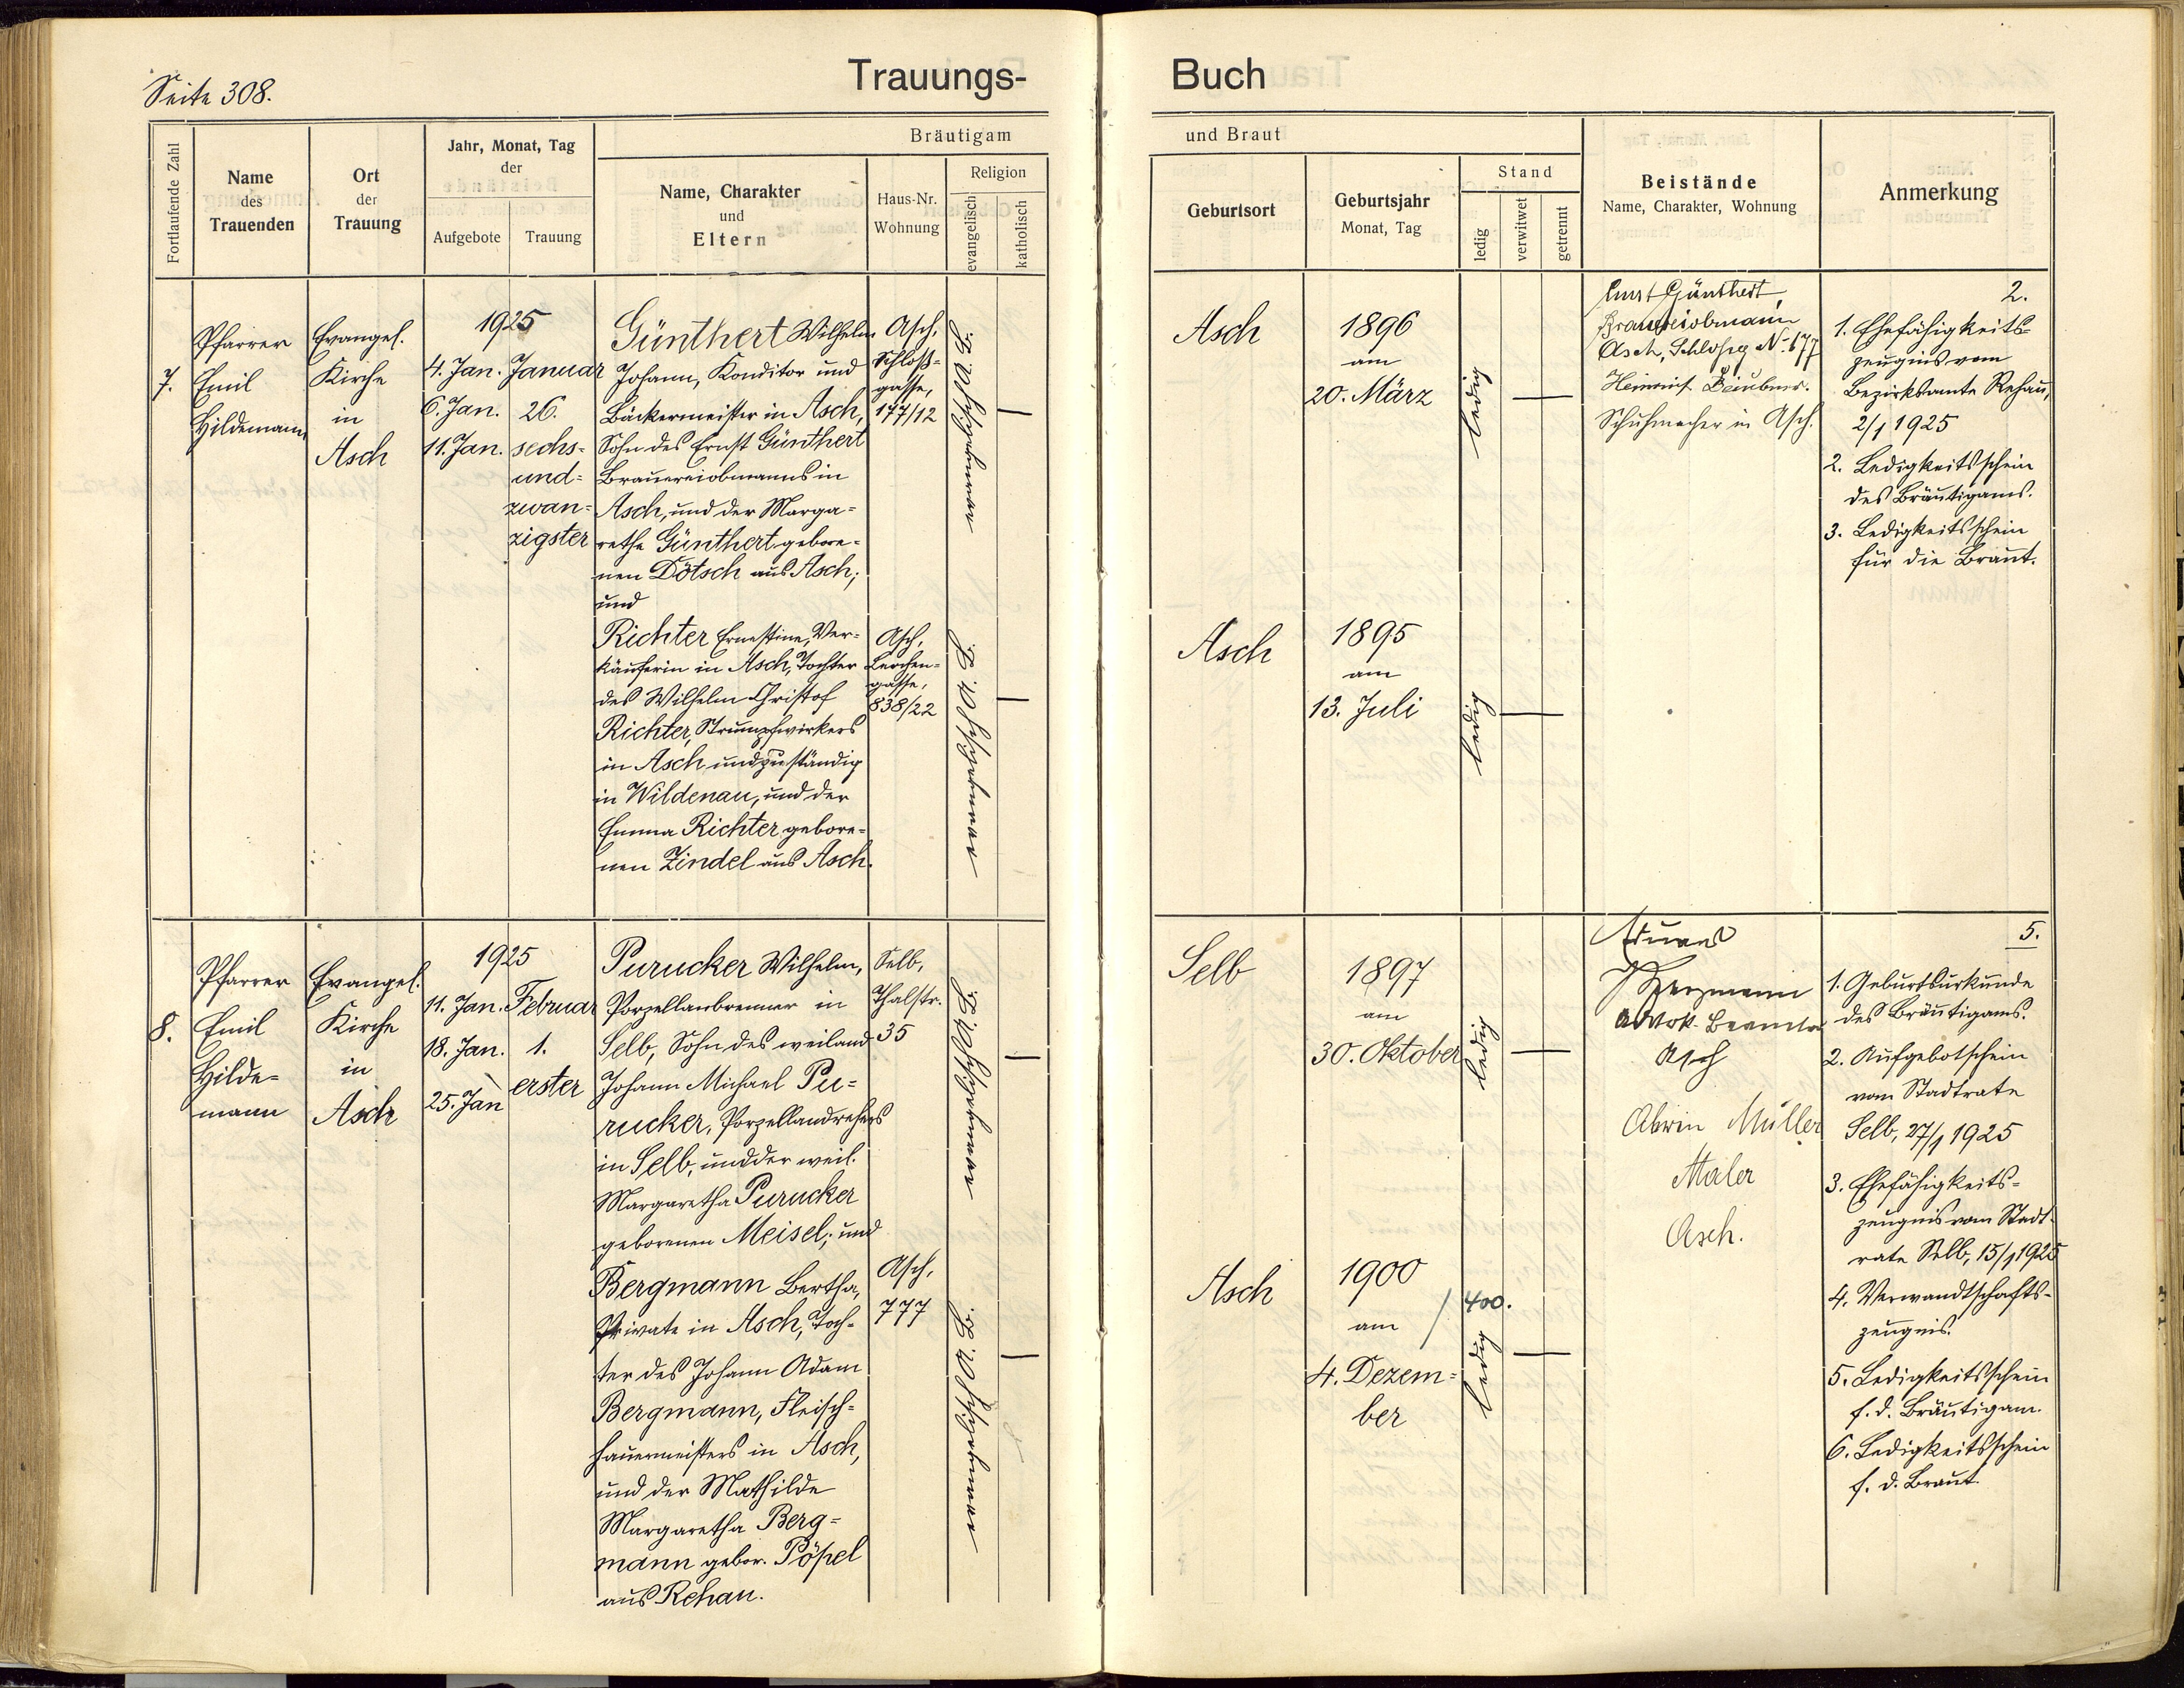 Seite 308.
Trauungs-
Buch
Fortlaufende Zahl
Name
des
Trauenden
Ort
der
Trauung
Jahr, Monat, Tag
der
Aufgebote
Trauung
Bräutigam
Name, Charakter
und
Eltern
Haus-Nr.
Wohnung
Religion
evangelisch
katholisch
und Braut
Geburtsort
Geburtsjahr
Monat, Tag
Stand
ledig
verwitwet
getrennt
Beistände
Name, Charakter, Wohnung
Anmerkung
7.
Pfarrer
Emil
Hildemann
Evangel.
Kirche
in
Asch
1925
4. Jan.
6. Jan.
11. Jan.
Januar
26.
sechs-
und-
zwan-
zigster
Günthert Wilhelm
Johann, Konditor und
Bäckermeister in Asch,
Sohn des Ernst Günthert
Brauereiobmanns in
Asch, und der Marga-
rethe Günthert gebore-
nen Dötsch aus Asch;
und
Richter Ernestine, Ver-
käuferin in Asch, Tochter
des Wilhelm Christof
Richter, Strumpfwirkers
in Asch und zuständig
in Wildenau, und der
Emma Richter gebore-
nen Zindel aus Asch.
Asch,
Schloß-
gasse,
177/12
Asch,
Lerchen-
gasse,
838/22
Asch
1896
am
20. März
ledig
Asch
1895
am
13. Juli
ledig
Ernst Günthert,
Brauereiobmann
Asch, Schloßg No. 177
Schuhmacher in Asch.
2.
1. Ehefähigkeits-
zeugnis vom
Bezirksamte Rehau,
2/1 1925
2. Ledigkeitsschein
des Bräutigams.
3. Ledigkeitsschein
für die Braut.
8.
Pfarrer
Emil
Hilde-
mann
Evangel.
Kirche
in
Asch
1925
11. Jan.
18. Jan.
25. Jan
Februar
1.
erster
Purucker Wilhelm,
Porzellanbrenner in
Selb, Sohn des weiland
Johann Michael Pu-
rucker, Porzellandrehers
in Selb, und der weil.
Margaretha Purucker
geborenen Meisel; und
Bergmann Bertha,
Private in Asch, Toch-
ter des Johann Adam
Bergmann, Fleisch-
hauermeisters in Asch,
und der Mathilde
Margaretha Berg-
mann gebor. Pöpel
aus Rehau.
Selb,
Thalstr.
35
Asch,
777
Selb
1897
am
30. Oktober
ledig
Asch
1900
am
4. Dezem-
ber
400.
ledig
Advok. Beamter
Asch
Alwin Müller
Maler
Asch.
5.
1. Geburtsurkunde
des Bräutigams.
2. Aufgebotschein
vom Stadtrate
Selb, 27/1 1925
3. Ehefähigkeits-
zeugnis vom Stadt-
rate Selb, 15/1 1925
4. Verwandtschafts-
zeugnis.
5. Ledigkeitsschein
f. d. Bräutigam.
6. Ledigkeitsschein
f. d. Braut.